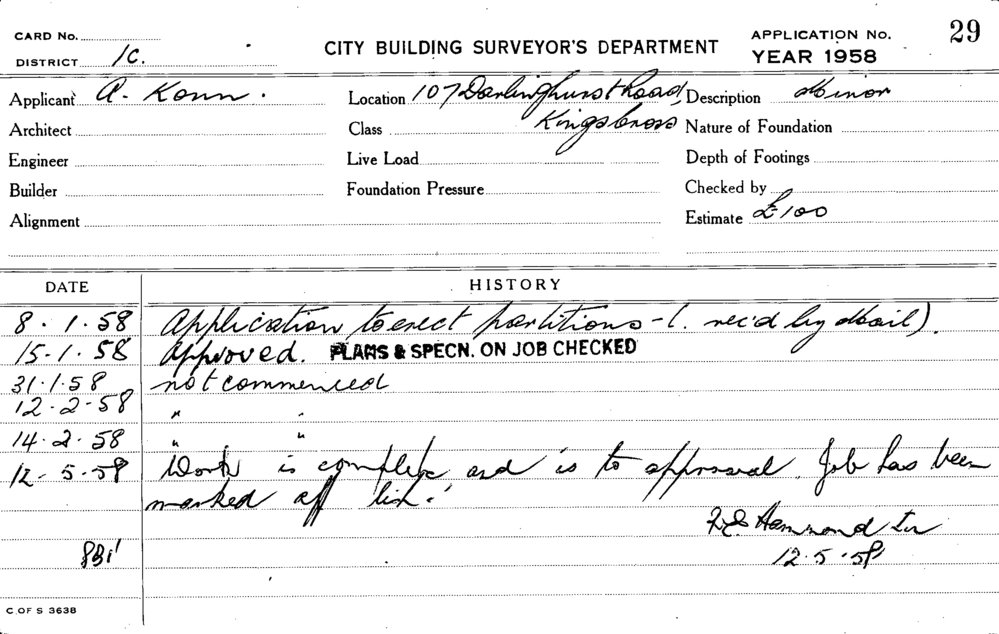 CARD No. CITY BUILDING SURVEYOR'S DEPARTMENT APPLICATION No. 29
DISTRICT 1C. YEAR 1958
Applicant A. Konn. Location 107 Darlinghurst Road, Description Minor
Architect Class Kings Cross Nature of Foundation
Engineer Live Load Depth of Footings
Builder Foundation Pressure Checked by
Alignment Estimate £100
DATE HISTORY
8.1.58 Application to erect partitions - (. rec'd by Mail).
15-1.58 Approved. PLANS & SPECN. ON JOB CHECKED
31.1.58 not commenced
12.2-58 " "
14.2.58 " "
12-5-58 Work is complete and is to approval. Job has been
marked off list.
Hammond
12.5.58
C OF S 3638